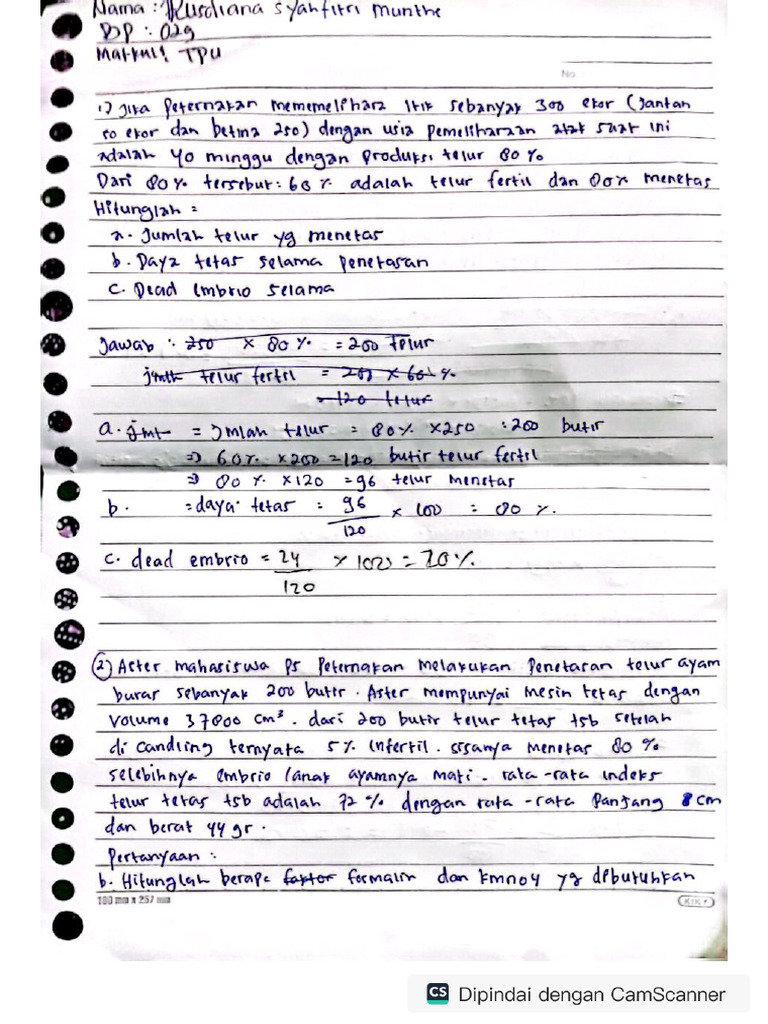 Nama : Rusdiana Syahfitri Munthe
BP : 029
Matkul : TPU
No
1) Jika Peternakan mememelihara Itik sebanyak 300 ekor (Jantan
50 ekor dan betina 250) dengan usia pemeliharaan saat ini
adalah 40 minggu dengan produksi telur 80 %
Dari 80 % tersebut : 60 % adalah telur fertil dan 80 % menetas
Hitunglah :
a. Jumlah telur yg menetas
b. Daya tetas selama penetasan
c. Dead Embrio selama
Jawab : 250 x 80 % = 200 Telur
jmlh telur fertil = 200 x 60 %
= 120 telur
a. jmt = Jmlah telur = 80 % x 250 : 200 butir
⇒ 60 % x 200 = 120 butir telur fertil
⇒ 80 % x 120 = 96 telur menetas
b. = daya tetas : 96/120 x 100 = 80 %.
c. dead embrio = 24/120 x 100 = 20 %.
② Aster mahasiswa PS Peternakan melakukan Penetasan telur ayam
buras sebanyak 200 butir. Aster mempunyai mesin tetas dengan
volume 37800 cm³. dari 200 butir telur tetas tsb setelah
di candling ternyata 5 % infertil. sisanya menetas 80 %
selebihnya embrio / anak ayamnya mati. rata-rata indeks
telur tetas tsb adalah 72 % dengan rata-rata Panjang 8 cm
dan berat 44 gr.
Pertanyaan :
b. Hitunglah berapa faktor formalin dan kmno4 yg dibutuhkan
180 mm x 257 mm
KIKY
CS Dipindai dengan CamScanner